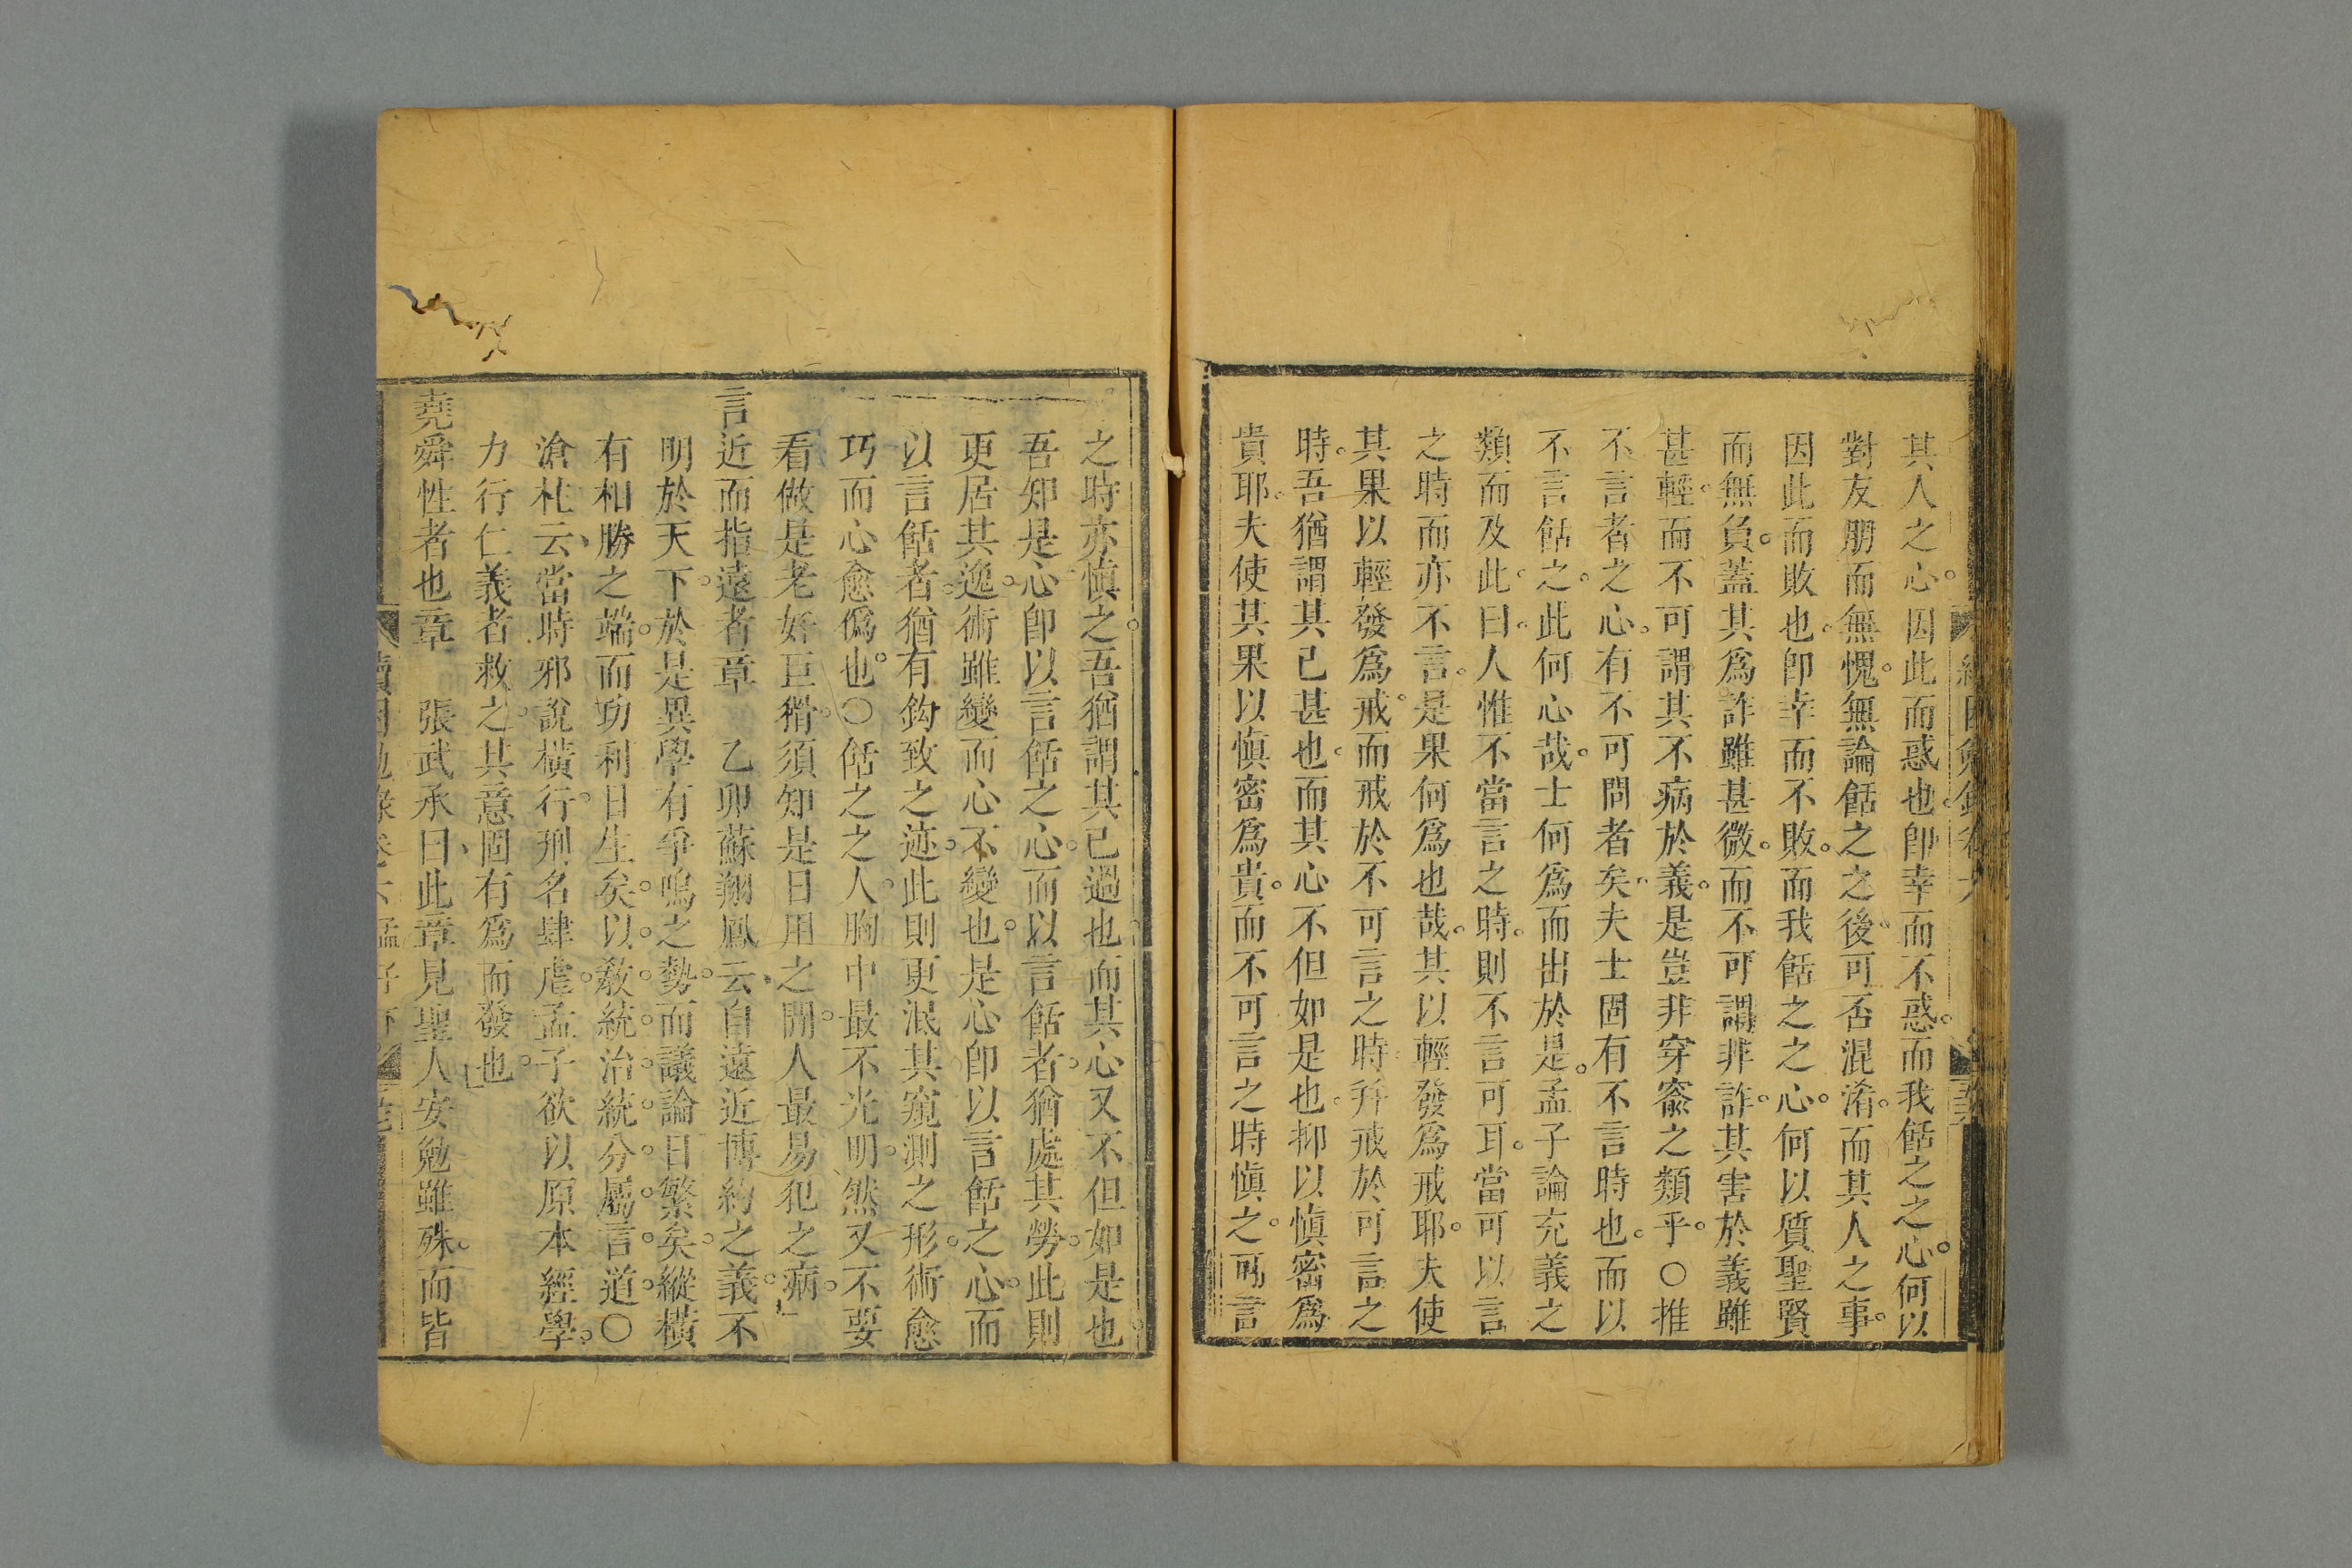 其人之心因此而惑也卽幸而不惑而我餂之之心何以
對友朋而無愧無論餂之之後可否混淆而其人之事
因此而敗也卽幸而不敗而我餂之之心何以質聖賢
而無負蓋其爲詐雖甚微而不可謂非詐其害於義雖
甚輕而不可謂其不病於義是豈非穿窬之類乎○推
不言者之心有不可問者矣夫士固有不言時也而以
不言餂之此何心哉士何爲而出於是孟子論充義之
類而及此曰人惟不當言之時則不言可耳當可以言
之時而亦不言是果何爲也哉其以輕發爲戒耶夫使
其果以輕發爲戒而戒於不可言之時幷戒於可言之
時吾猶謂其已甚也而其心不但如是也抑以愼密爲
貴耶夫使其果以愼密爲貴而不可言之時愼之可言
之時亦愼之吾猶謂其已過也而其心又不但如是也
吾知是心卽以言餂之心而以言餂者猶處其勞此則
更居其逸術雖變而心不變也是心卽以言餂之心而
以言餂者猶有鈎致之迹此則更泯其窺測之形術愈
巧而心愈僞也○餂之之人胸中最不光明然又不要
看做是老奸巨猾須知是日用之間人最易犯之病
言近而指遠者章　乙卯蘇翔鳳云自遠近博約之義不
明於天下於是異學有爭鳴之勢而議論日繁矣縱橫
有相勝之端而功利日生矣以敎統治統分屬言道○
滄柱云當時邪說橫行刑名肆虐孟子欲以原本經學
力行仁義者救之其意固有爲而發也
堯舜性者也章　張武承曰此章見聖人安勉雖殊而皆
續困勉錄卷六孟子下